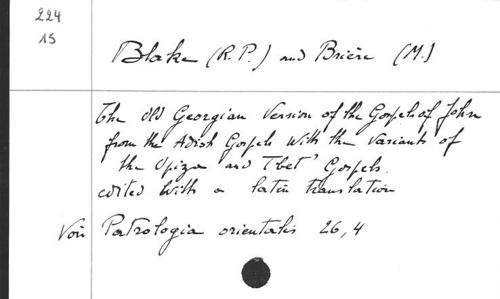 224
15
Blake (R.P.) and Brière (M.)
The old Georgian version of the Gospel of John
from the Adish Gospels with the variants of
the Opiza and Tbet' Gospels.
edited with a latin translation
Voir Patrologia orientalis 26,4